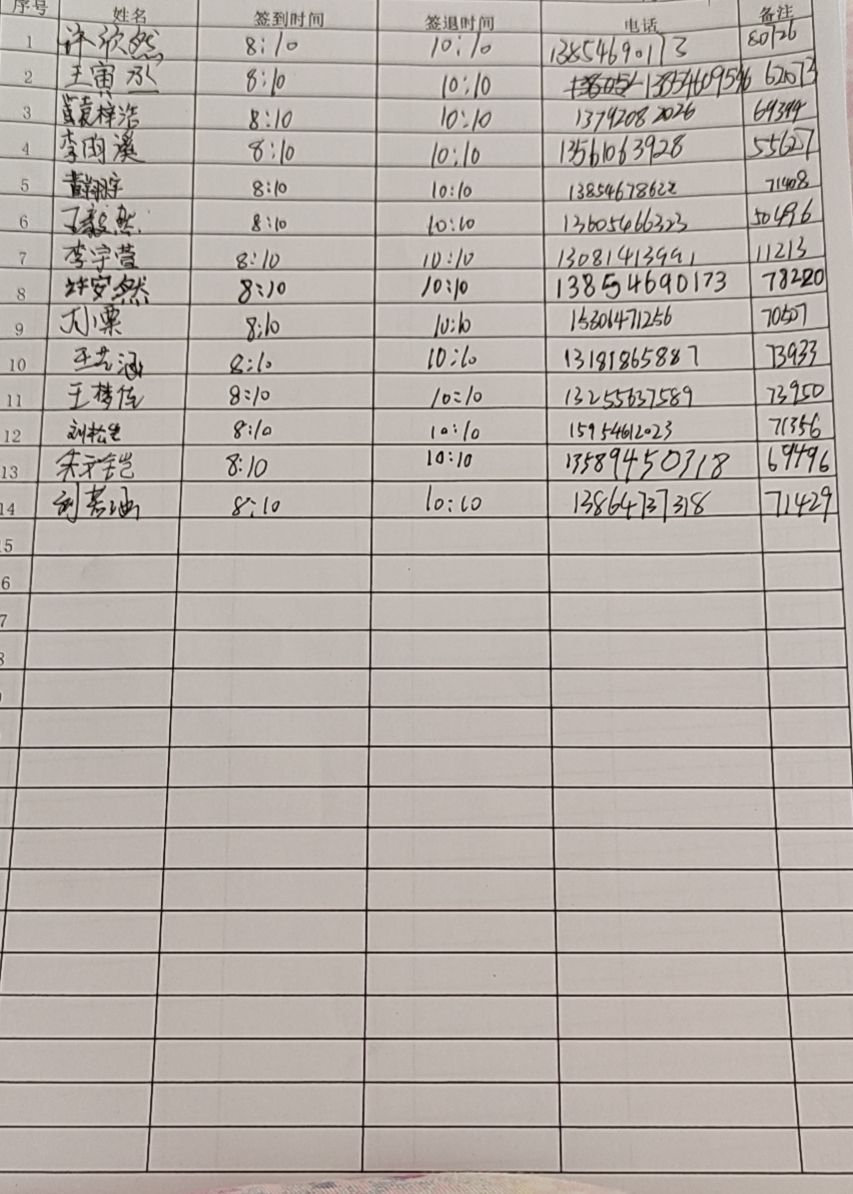 序号 姓名 签到时间 签退时间 电话 备注
1 许欣然 8:10 10:10 13854690173 80726
2 王寅丞 8:10 10:10 13854609596 62073
3 袁梓浩 8:10 10:10 13792082026 69394
4 李雨溪 8:10 10:10 13561063928 55627
5 黄翔宇 8:10 10:10 13854678622 71408
6 丁毅然 8:10 10:10 13605466323 50496
7 李宇萱 8:10 10:10 13081413991 11213
8 许安然 8:10 10:10 13854690173 78220
9 8:10 10:10 15306471256 70507
10 王艺涵 8:10 10:10 13181865887 73933
11 王梦佳 8:10 10:10 13255637589 73950
12 刘松 8:10 10:10 15954612023 71356
13 朱 8:10 10:10 13589450318 69496
14 刘若涵 8:10 10:10 13864737318 71429
5
6
7
8